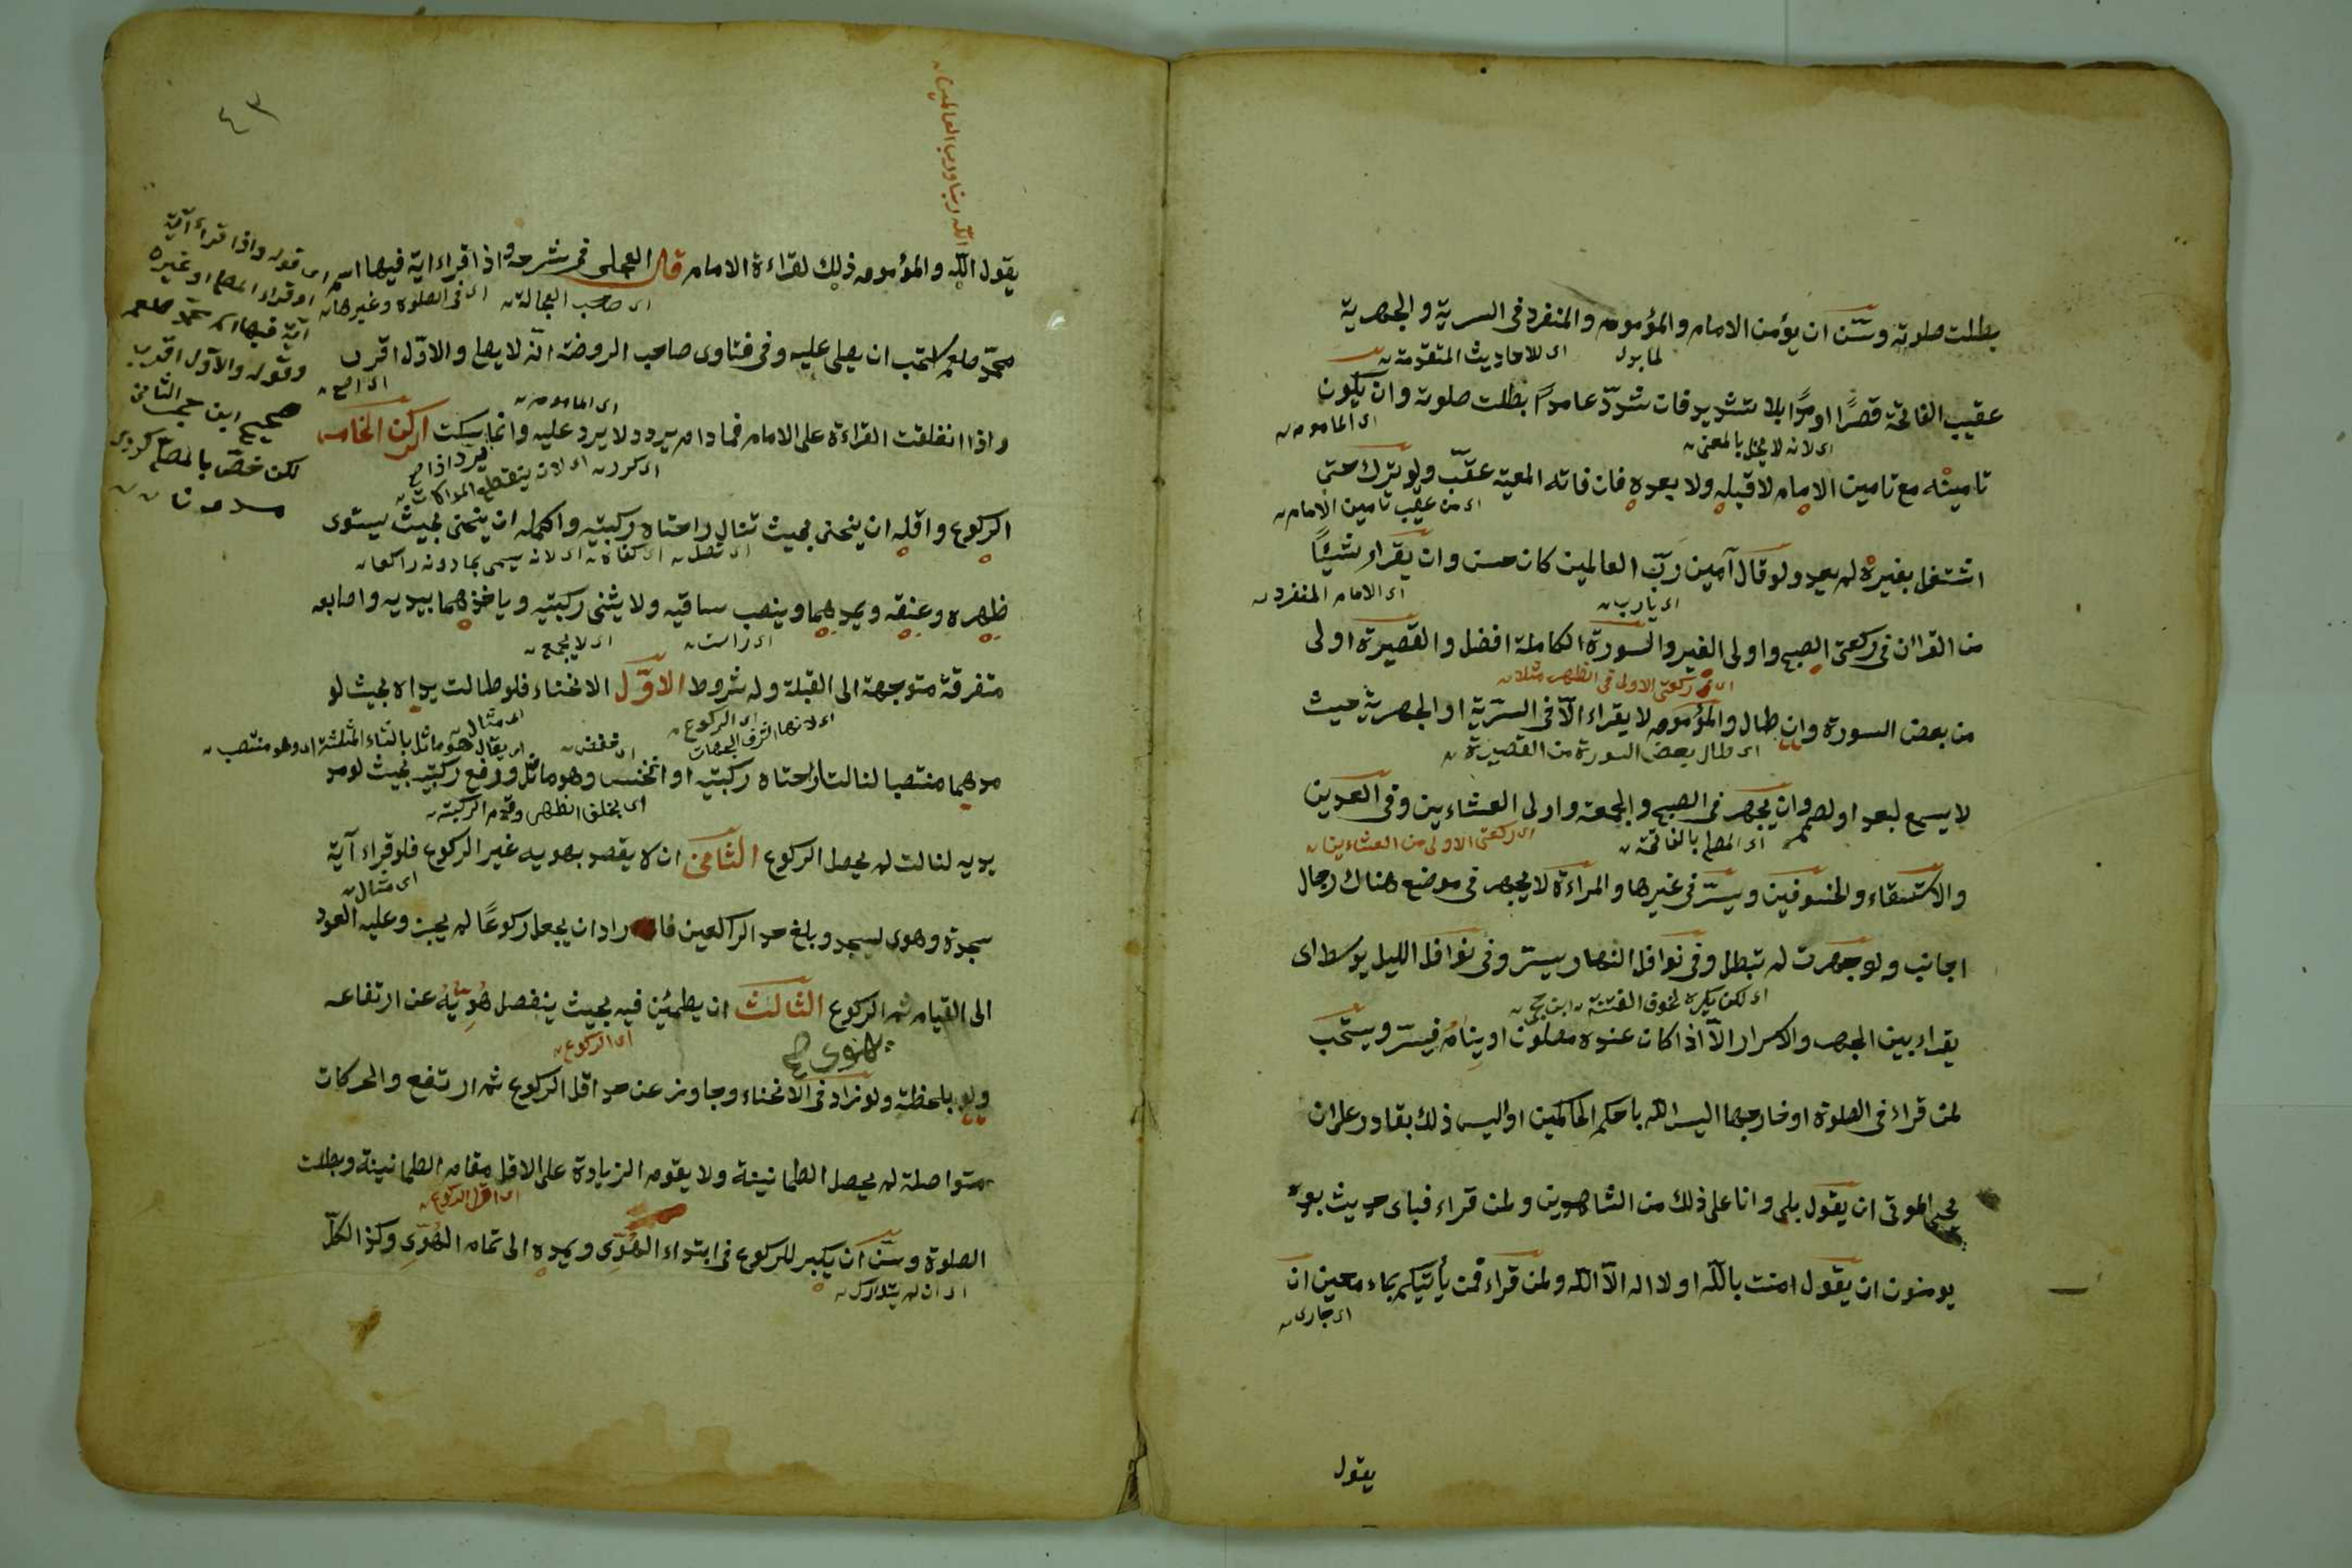 بطلت صلوته وسن ان يؤمن الامام والمؤموم والمنفرد فى السرية والجهرية
اى للاحاديث المتقدمة
عقيب الفاتحة قصرًا او مدًا بلا تشديد فان شدّد عامدًا بطلت صلوته وان يكون
اى لانه لا يخل بالمعنى
اى الماموم
تامينه مع تامين الامام لا قبله ولا بعده فان فاته المعية عقّب ولو ترك حتى
اى من عقيب تامين الامام
اشتغل بغيره لم يعد ولو قال آمين ربّ العالمين كان حسن وان يقراء شيئًا
اى يارب
اى الامام المنفرد
من القرآن فى ركعتى الصبح واولى الغير والسورة الكاملة افضل والقصيرة اولى
اى ركعتى الاولى فى الظهر مثلا
من بعض السورة وان طال والمؤموم لا يقراء الّا فى السرّية او الجهرية حيث
اى طال بعض السورة من القصيرة
لا يسمع لبعد او لصمم وان يجهر فى الصبح والجمعة واولى العشاءين وفى العيدين
اى المصلى بالفاتحة
اى ركعتى الاولى من العشاءين
والاستسقاء والخسوفين ويسرّ فى غيرها والمراءة لا يجهر فى موضع هناك رجال
اجانب ولو جهرت لم تبطل وفى نوافل النهار يسرّ وفى نوافل الليل يوسط اى
اى لكن يكره لخوف الفتنة ابن حجر
يقراء بين الجهر والاسرار الّا اذا كان عنده مصلون او ينام فيسرّ ويستحب
لمن قراء فى الصلوة او خارجها اليس الله باحكم الحاكمين او اليس ذلك بقادر على ان
يحيى الموتى ان يقول بلى وانا على ذلك من الشاهدين ولمن قراء فباى حديث بعده
يومنون ان يقول امنت بالله او لا اله الّا الله ولمن قراء فمن يأتيكم بماء معين ان
اى جارى
يقول
٤٣
الله ربنا ورب العالمين
يقول الله والمؤموم ذلك لقراءة الامام قال العجلى فى شرحه واذا قراء اية فيها اسم
اى صاحب العجالة
اى فى الصلوة وغيرها
محمّد صلعم استحب ان يصلى عليه وفى فتاوى صاحب الروضة انه لا يصلى والاوّل اقرب
اى الماموم
واذا انغلقت القراءة على الامام فما دام يردد لا يرد عليه وانما يسكت الركن الخامس
اى كرر
الركوع واقله ان ينحنى بحيث تنال راحتاه ركبتيه واكمله ان ينحنى بحيث يستوى
اى تصل
اى كفاه
اى لانه يسمى بما دونه راكعا
ظهره وعنقه ويمدهما وينصب ساقيه ولا يثنى ركبتيه وياخذهما بيديه واصابعه
اى راست
اى لا يجمع
متفرقة متوجهة الى القبلة وله شروط الاوّل الانحناء فلو طالت يداه بحيث لو
اى لانها اشرف الجهات
اى الركوع
مدهما منتصبا لنالت راحتاه ركبتيه او انخنس وهو مائل ورفع ركبتيه بحيث لو مد
يديه لنالت لم يحصل الركوع الثانى ان لا يقصد بهويه غير الركوع فلو قراء آية
اى مثال
سجدة وهوى ليسجد وبلغ حد الراكعين فاراد ان يجعله ركوعًا لم يجز وعليه العود
الى القيام ثم الركوع الثالث ان يطمئن فيه بحيث ينفصل هويه عن ارتفاعه
اى الركوع
ولو بلحظة ولو زاد فى الانحناء وجاوز عن حد اقل الركوع ثم ارتفع والحركات
متواصلة لم يحصل الطمانينة ولا يقوم الزيادة على الاقل مقام الطمانينة وبطلت
اى اقل الركوع
الصلوة وسن ان يكبر للركوع فى ابتداء الهُوِّى ويمده الى تمام الهُوِّى وكذا الكلّ
اى ان لم يتدارك
اى قوله واذا قراء آية
او قراء المصلى او غيره
آية فيها اسم محمد صلعم
وقوله والاول اقرب
لكن خصّ بالمصلى